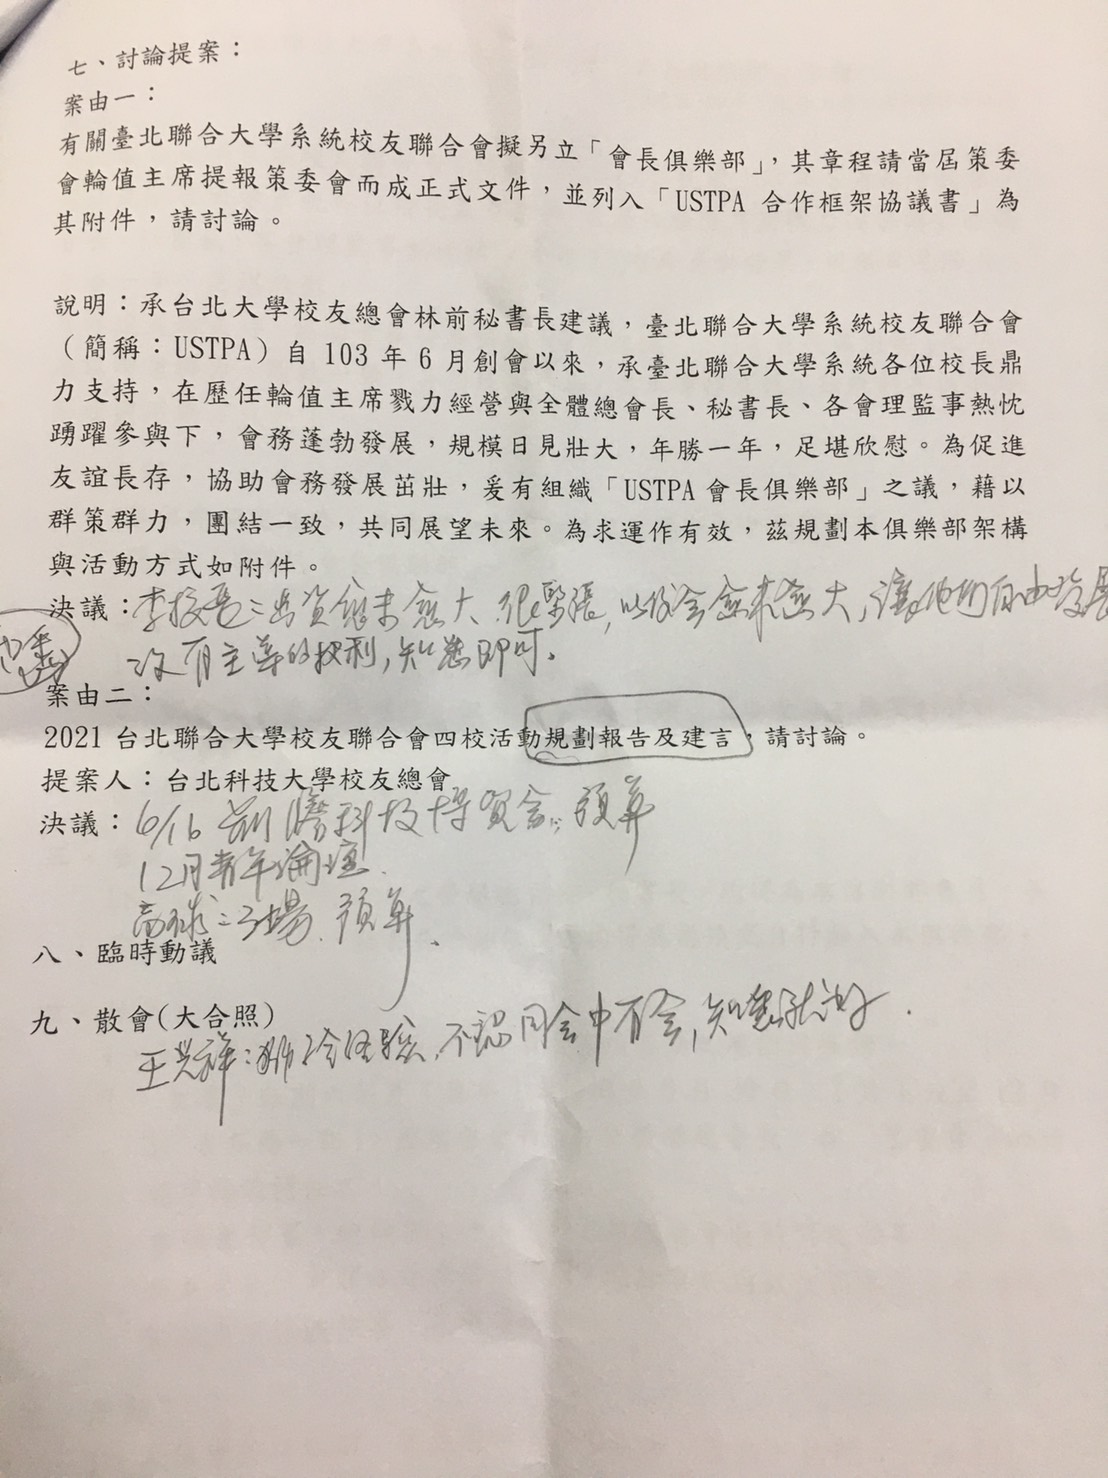 七、討論提案：
案由一：
有關臺北聯合大學系統校友聯合會擬另立「會長俱樂部」，其章程請當屆策委
會輪值主席提報策委會而成正式文件，並列入「USTPA 合作框架協議書」為
其附件，請討論。
說明：承台北大學校友總會林前秘書長建議，臺北聯合大學系統校友聯合會
（簡稱：USTPA）自 103 年 6 月創會以來，承臺北聯合大學系統各位校長鼎
力支持，在歷任輪值主席戮力經營與全體總會長、秘書長、各會理監事熱忱
踴躍參與下，會務蓬勃發展，規模日見壯大，年勝一年，足堪欣慰。為促進
友誼長存，協助會務發展茁壯，爰有組織「USTPA 會長俱樂部」之議，藉以
群策群力，團結一致，共同展望未來。為求運作有效，茲規劃本俱樂部架構
與活動方式如附件。
決議：李校長：出資愈來愈大、很緊張，以後会愈來愈大，讓他們自由發展
沒有主導的权利，知悉即可。
案由二：
2021 台北聯合大學校友聯合會四校活動規劃報告及建言，請討論。
提案人：台北科技大學校友總會
決議：6/16 科技 预算
12月青年論壇
高球：場、预算、
八、臨時動議
九、散會(大合照)
王兴祥：不認同会中有会，知悉就好.